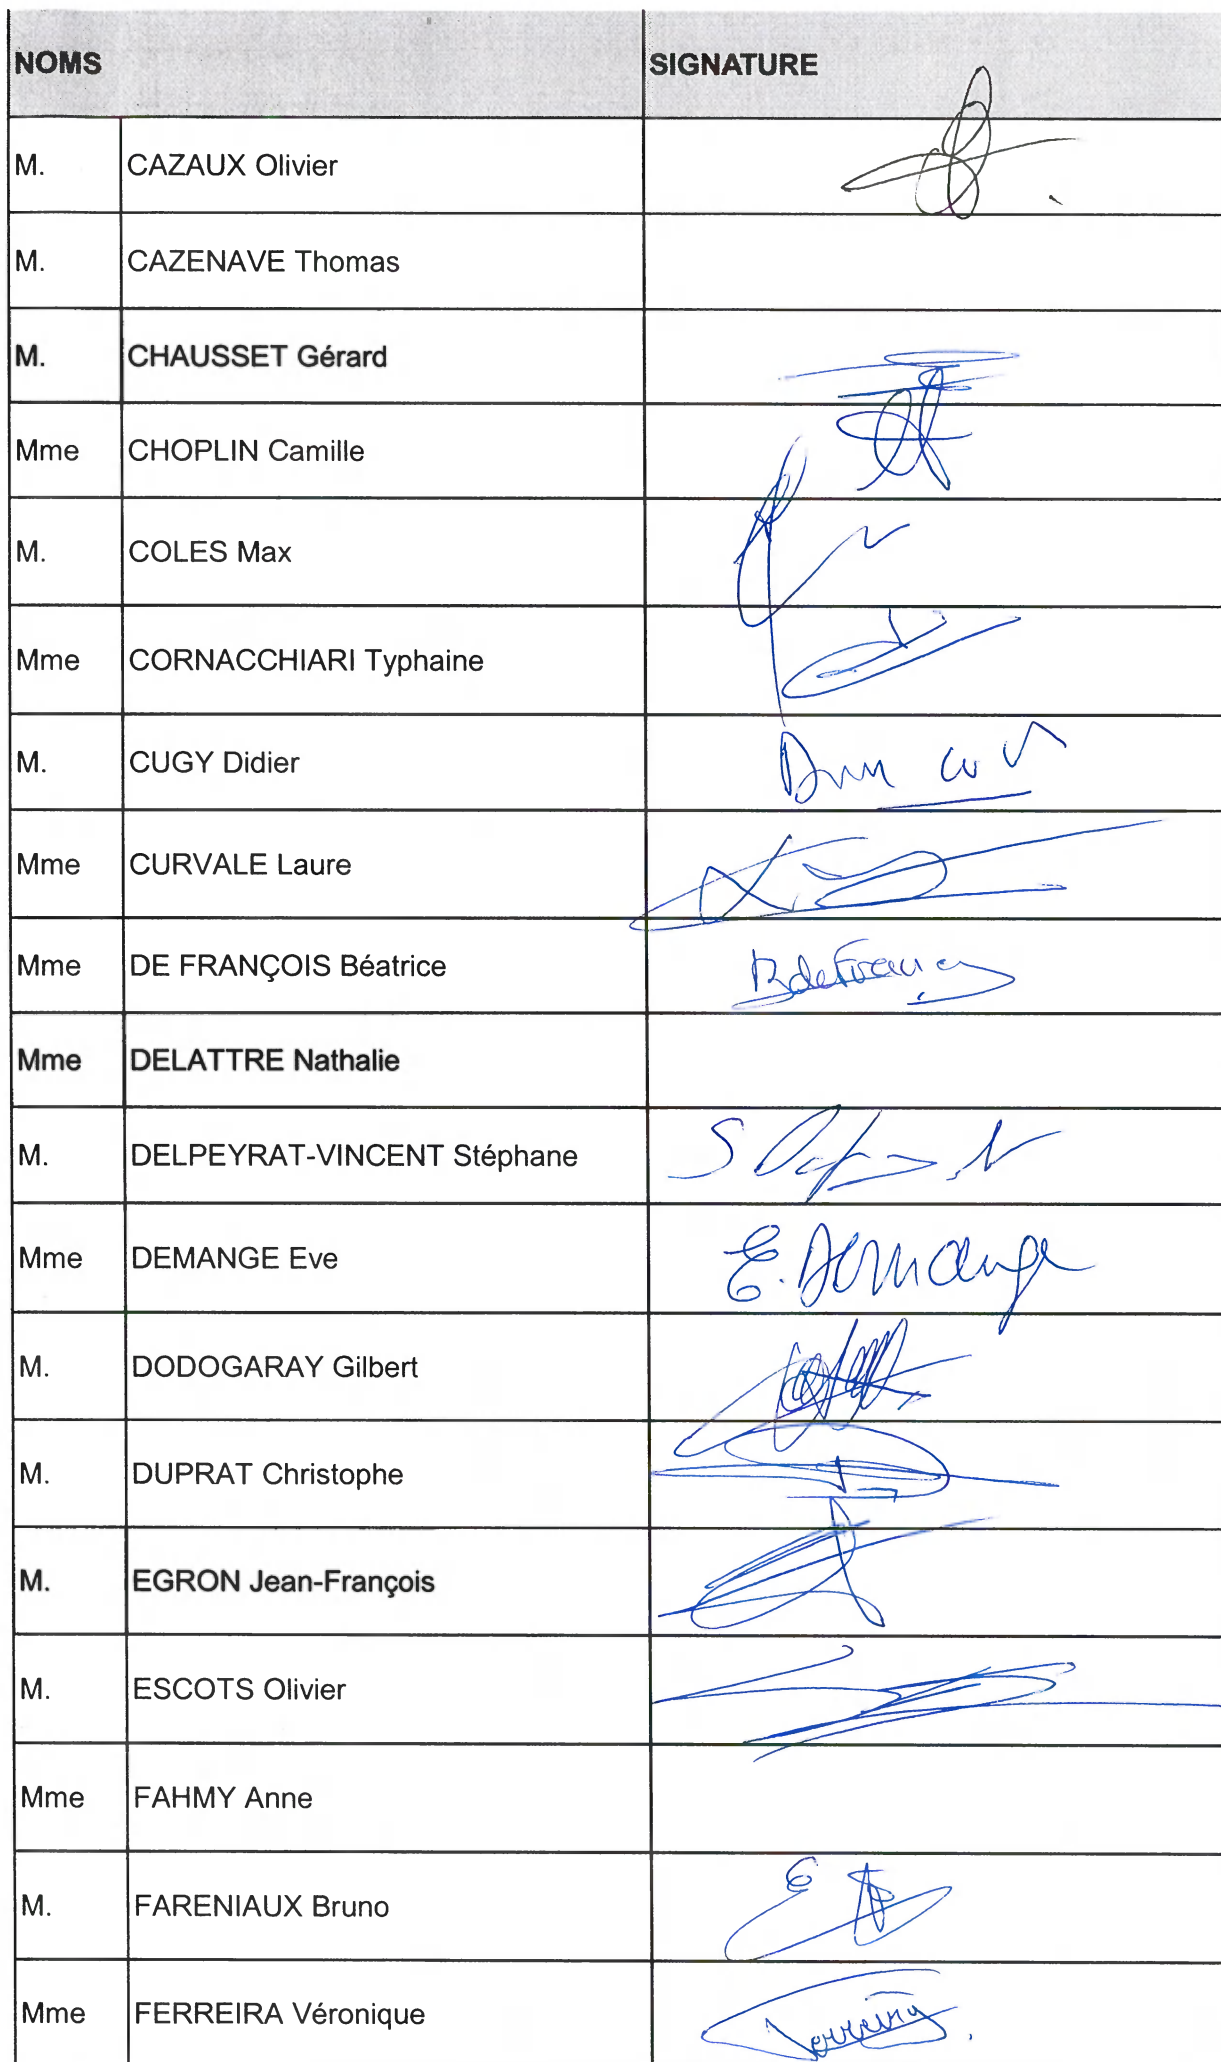 NOMS SIGNATURE
M. CAZAUX Olivier
M. CAZENAVE Thomas
M. CHAUSSET Gérard
Mme CHOPLIN Camille
M. COLES Max
Mme CORNACCHIARI Typhaine
M. CUGY Didier
Mme CURVALE Laure
Mme DE FRANÇOIS Béatrice
Mme DELATTRE Nathalie
M. DELPEYRAT-VINCENT Stéphane
Mme DEMANGE Eve E. Demange
M. DODOGARAY Gilbert
M. DUPRAT Christophe
M. EGRON Jean-François
M. ESCOTS Olivier
Mme FAHMY Anne
M. FARENIAUX Bruno
Mme FERREIRA Véronique Ferreira